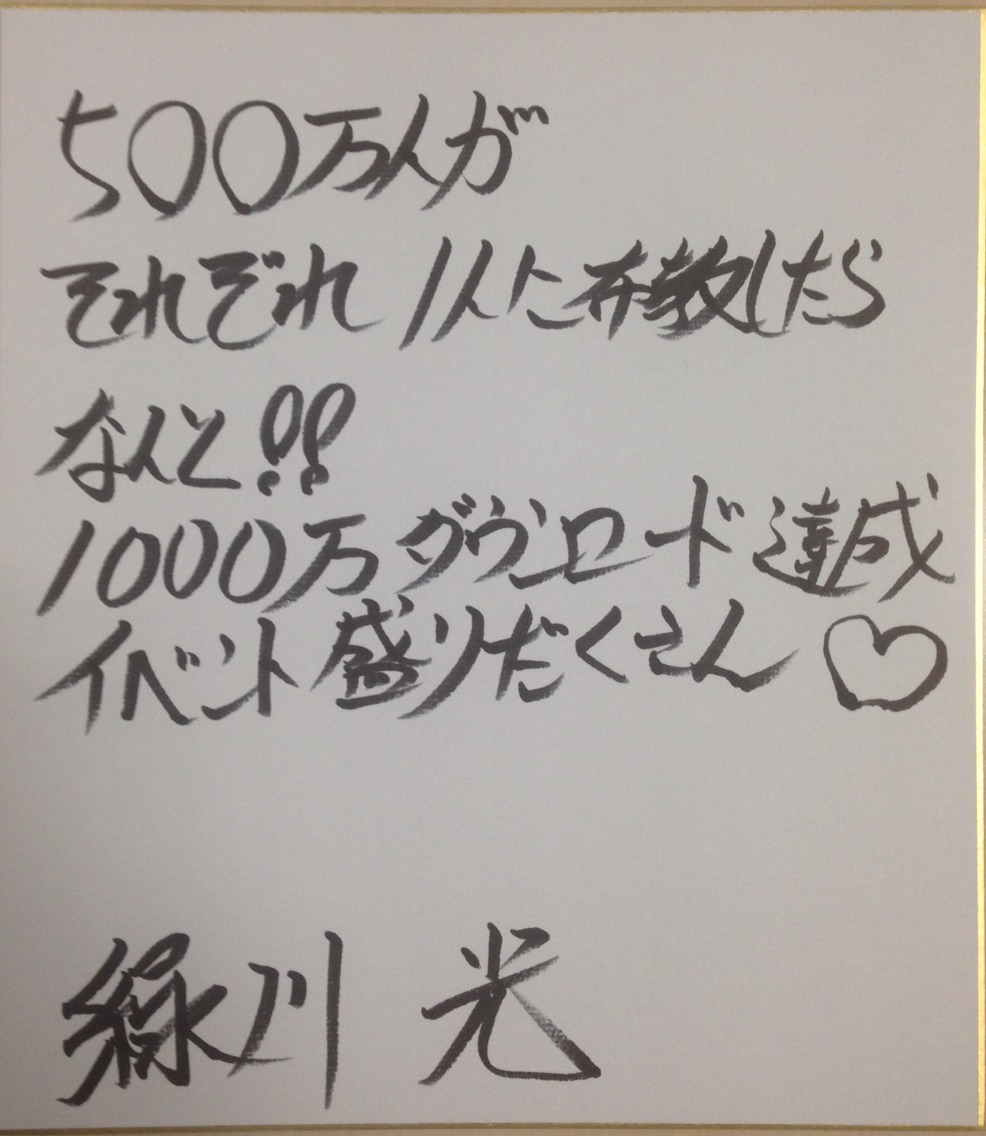 500万人が
それぞれ1人に布教したら
なんと!!
1000万ダウンロード達成
イベント盛りだくさん♡
緑川 光